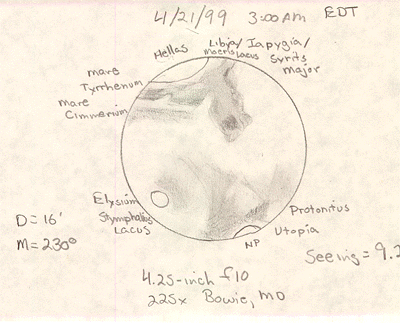 4/21/99 3:00AM EDT
Hellas
Libya/
Moeris Lacus
Iapygia/
Syrtis
Major
mare
Tyrrhenum
mare
Cimmerium
Elysium
Stymphalius
Lacus
D=16'
M=230°
Protonilus
Utopia
NP
Seeing = 9.2
4.25-inch f10
225x Bowie, MD